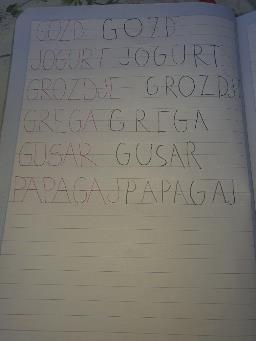 GOZD GOZD
JOGURT JOGURT
GROZDJE GROZDJE
GREGA GREGA
GUSAR GUSAR
PAPAGAJ PAPAGAJ